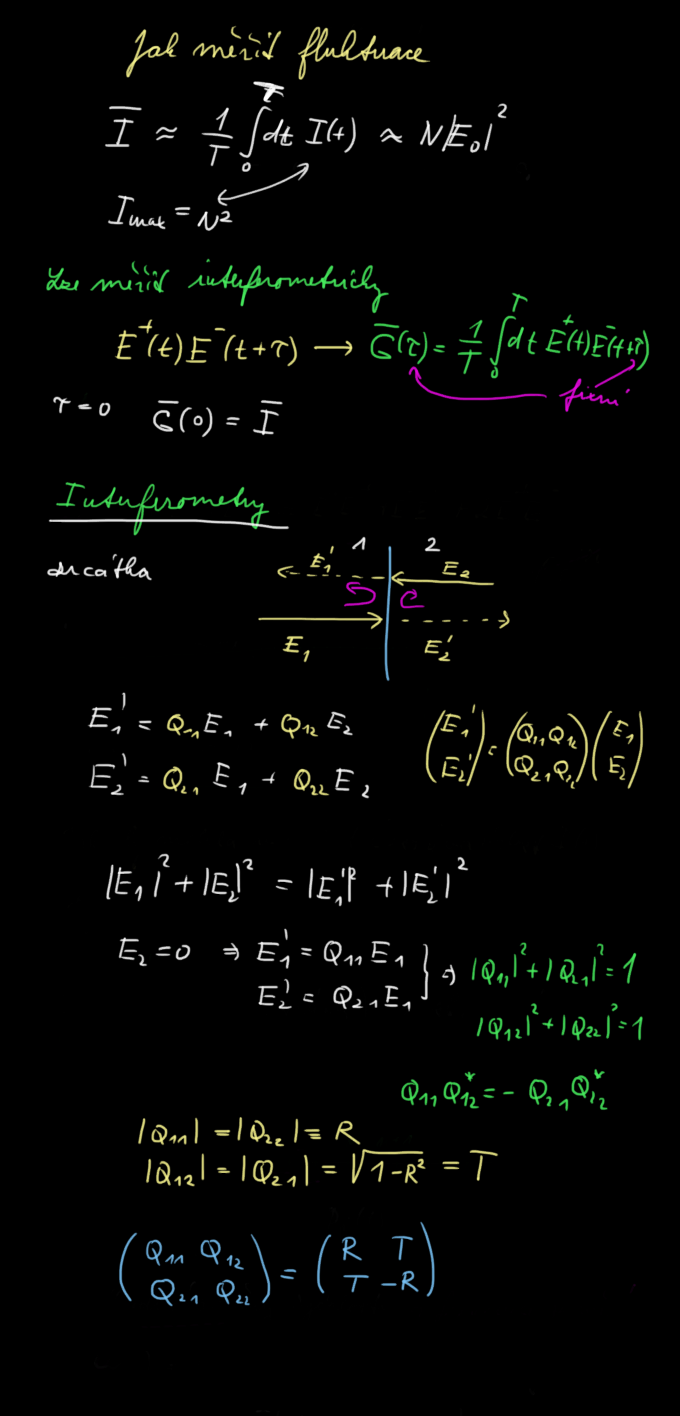 Jak měřit fluktuace
Ī ≈ 1/T ∫₀ᵀ dt I(t) ∝ N|E₀|²
I_max = N²
Lze měřit interferometricky
E⁺(t)E⁻(t+τ) → G̅(τ) = 1/T ∫₀ᵀ dt E⁺(t)E⁻(t+τ)
fixní
τ=0 G̅(0) = Ī
Interferometry
zrcátka
1 2
E₁' E₂
E₁ E₂'
E₁' = Q₁₁E₁ + Q₁₂E₂ (E₁' E₂') = (Q₁₁ Q₁₂ Q₂₁ Q₂₂)(E₁ E₂)
E₂' = Q₂₁E₁ + Q₂₂E₂
|E₁|² + |E₂|² = |E₁'|² + |E₂'|²
E₂=0 ⇒ E₁' = Q₁₁E₁ } ⇒ |Q₁₁|² + |Q₂₁|² = 1
E₂' = Q₂₁E₁ |Q₁₂|² + |Q₂₂|² = 1
|Q₁₁| = |Q₂₂| = R
|Q₁₂| = |Q₂₁| = √(1−R²) = T
(Q₁₁ Q₁₂ = (R T
Q₂₁ Q₂₂) T −R)